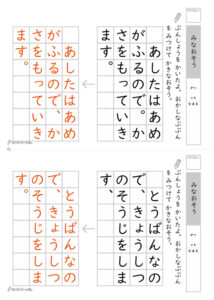 みなおそう
ぶんしょうをかいたよ。おかしなぶぶん
をみつけてかきなおそう。
あしたはあめ
がふるので、か
さをもっていき
ます。
あしたはあめ
がふるので、か
さをもっていき
ます。
みなおそう
ぶんしょうをかいたよ。おかしなぶぶん
をみつけてかきなおそう。
とうばんの
で、きょうしつ
のそうじをしま
す。
とうばんの
で、きょうしつ
のそうじをしま
す。